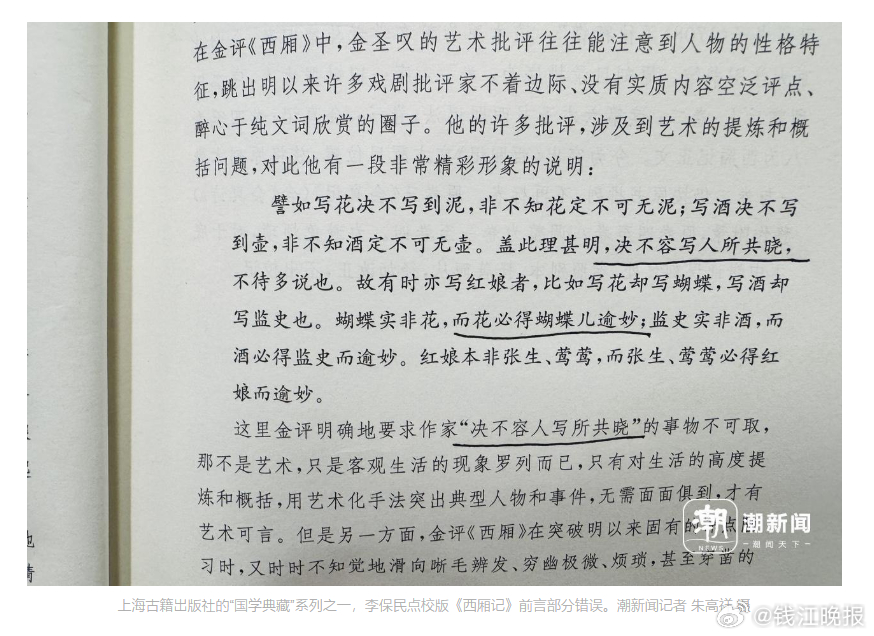 在金评《西厢》中，金圣叹的艺术批评往往能注意到人物的性格特
征，跳出明以来许多戏剧批评家不着边际、没有实质内容空泛评点、
醉心于纯文词欣赏的圈子。他的许多批评，涉及到艺术的提炼和概
括问题，对此他有一段非常精彩形象的说明：
譬如写花决不写到泥，非不知花定不可无泥；写酒决不写
到壶，非不知酒定不可无壶。盖此理甚明，决不容写人所共晓，
不待多说也。故有时亦写红娘者，比如写花却写蝴蝶，写酒却
写监史也。蝴蝶实非花，而花必得蝴蝶儿逾妙；监史实非酒，而
酒必得监史而逾妙。红娘本非张生、莺莺，而张生、莺莺必得红
娘而逾妙。
这里金评明确地要求作家“决不容人写所共晓”的事物不可取，
那不是艺术，只是客观生活的现象罗列而已，只有对生活的高度提
炼和概括，用艺术化手法突出典型人物和事件，无需面面俱到，才有
艺术可言。但是另一方面，金评《西厢》在突破明以来固有的
习时，又时时不知觉地滑向晰毛辨发、穷幽极微、烦琐，甚至穿凿的
地
情
潮 NEWS 潮新闻
潮闻天下
上海古籍出版社的“国学典藏”系列之一，李保民点校版《西厢记》前言部分错误。潮新闻记者 朱高祥 摄
@钱江晚报